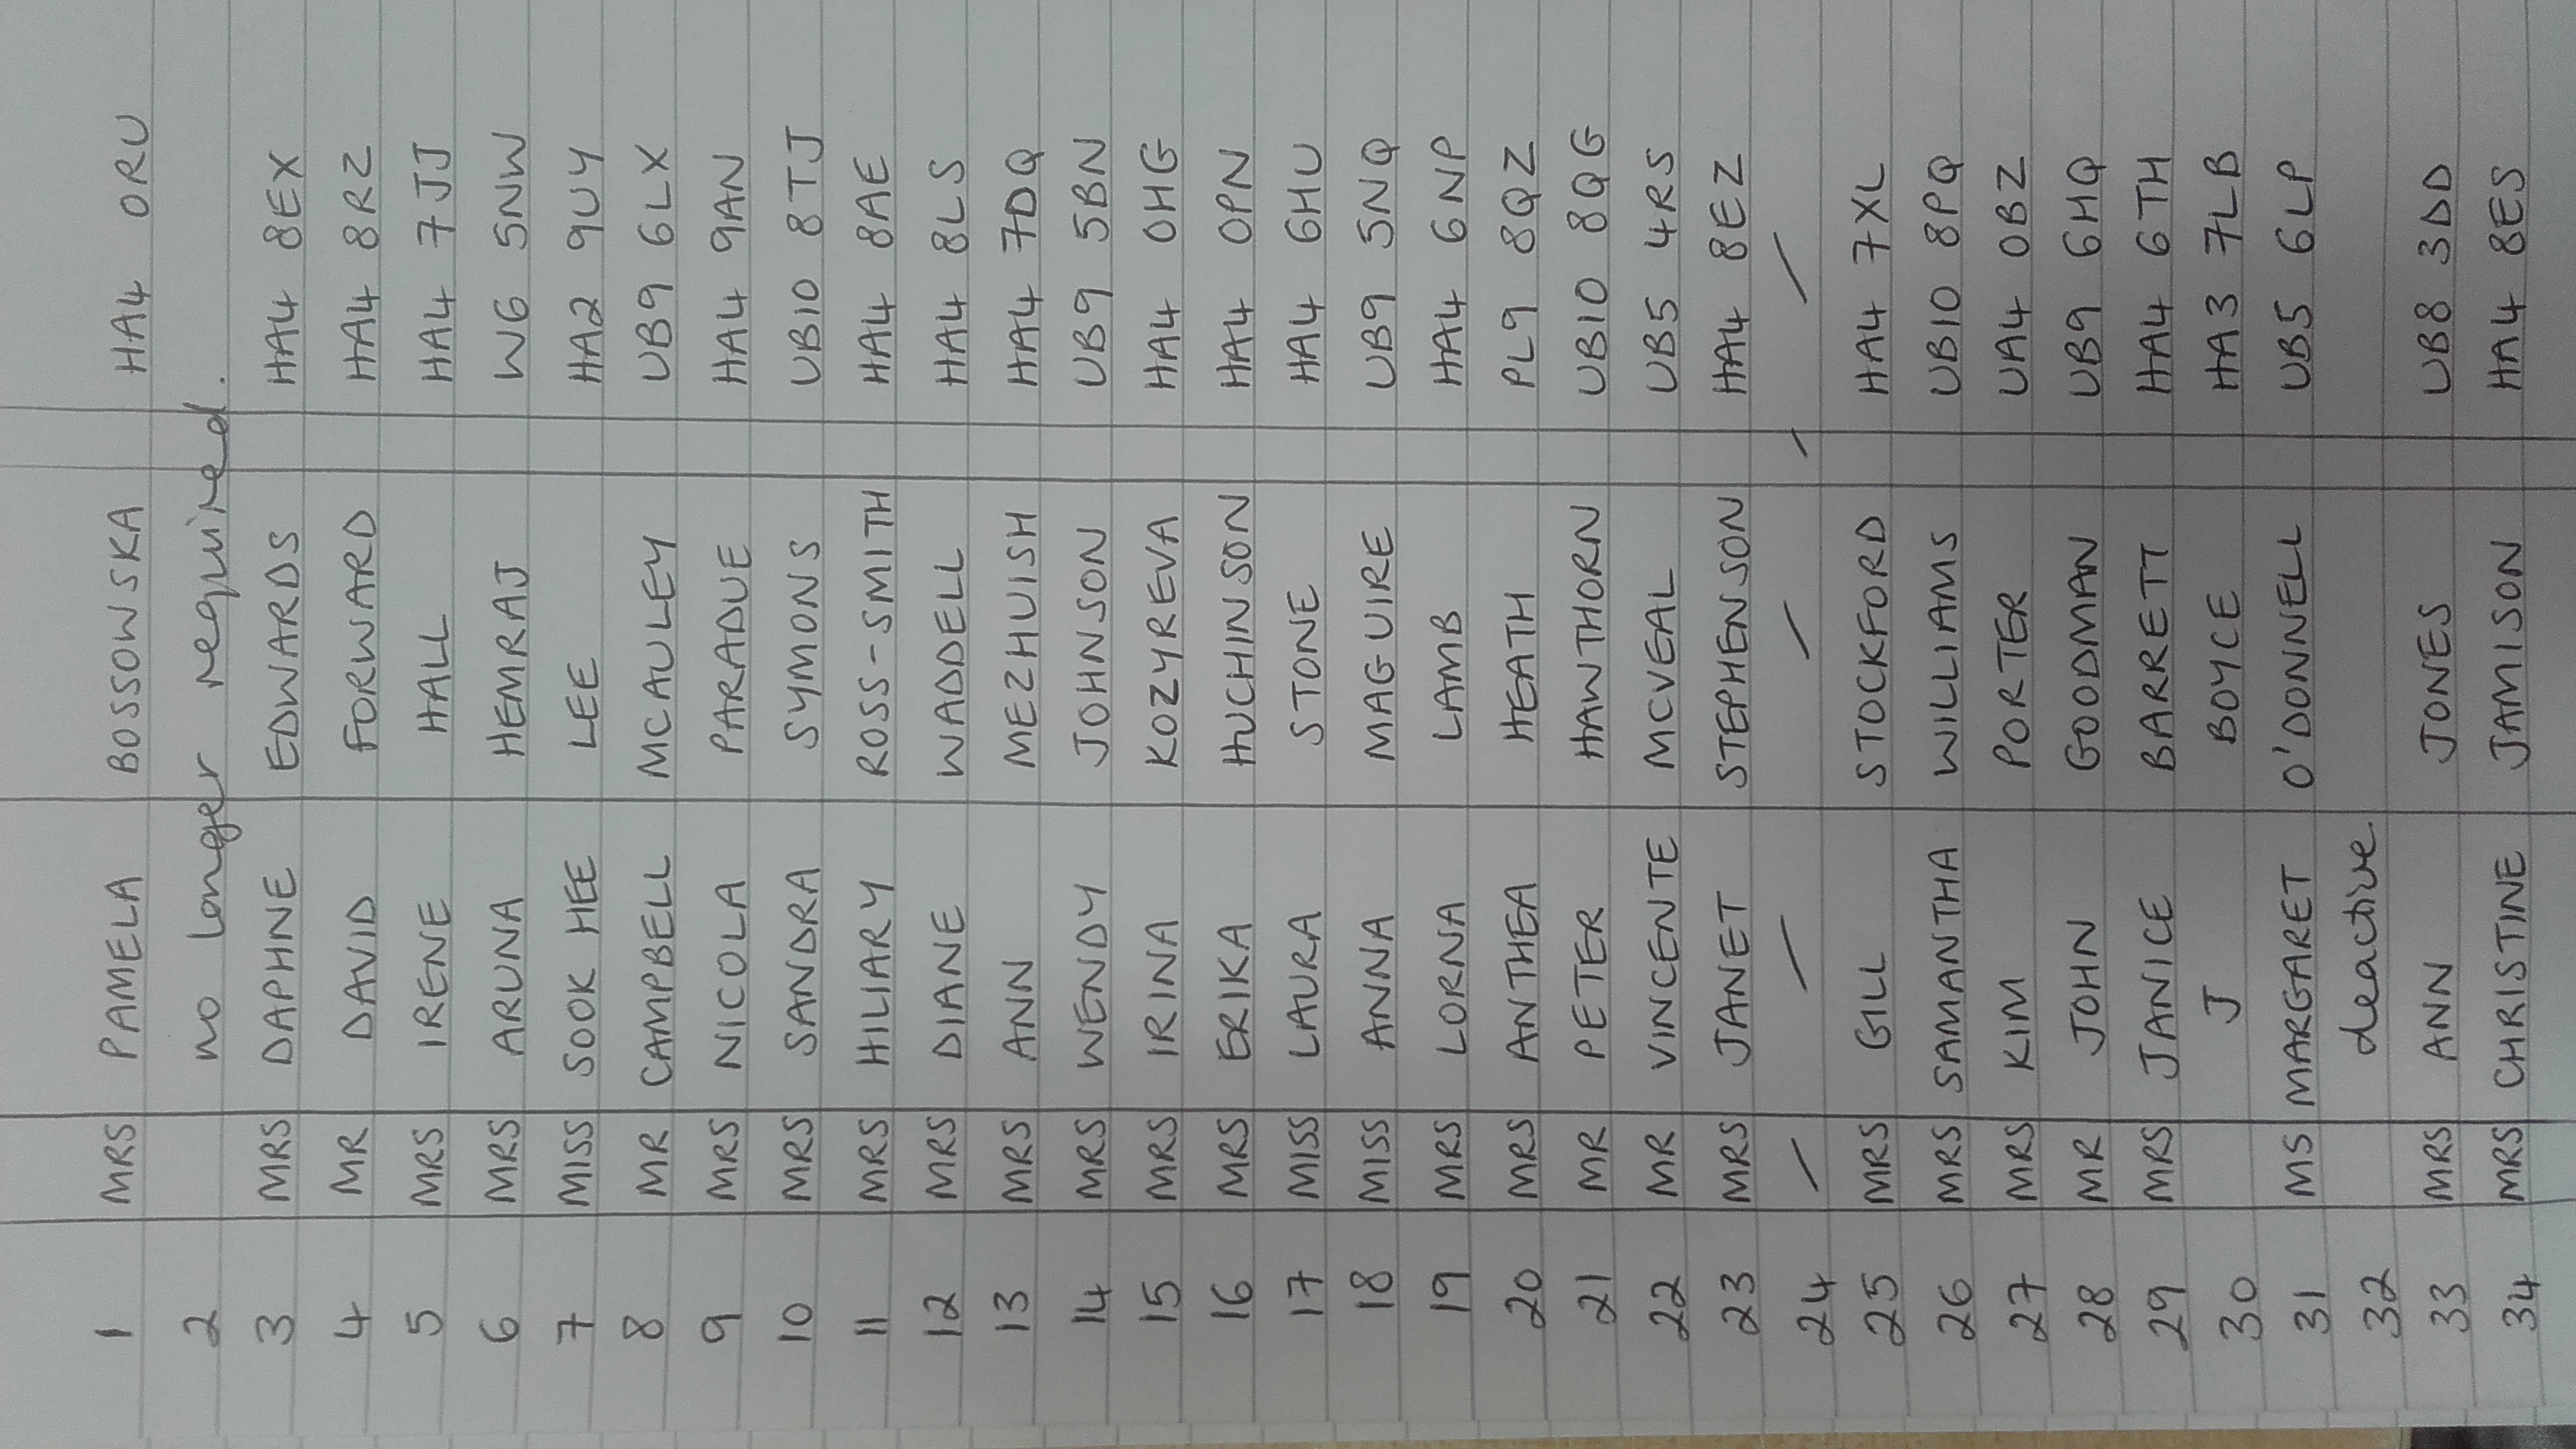 1 MRS PAMELA BOSSOWSKA HA4 0RU
2 no longer required.
3 MRS DAPHNE EDWARDS HA4 8EX
4 MR DAVID FORWARD HA4 8RZ
5 MRS IRENE HALL HA4 7JJ
6 MRS ARUNA HEMRAJ W6 5NW
7 MISS SOOK HEE LEE HA2 9UY
8 MR CAMPBELL MCAULEY UB9 6LX
9 MRS NICOLA PARADUE HA4 9AN
10 MRS SANDRA SYMONS UB10 8TJ
11 MRS HILIARY ROSS-SMITH HA4 8AE
12 MRS DIANE WADDELL HA4 8LS
13 MRS ANN MEZHUISH HA4 7DQ
14 MRS WENDY JOHNSON UB9 5BN
15 MRS IRINA KOZYREVA HA4 0HG
16 MRS ERIKA HUCHINSON HA4 0PN
17 MISS LAURA STONE HA4 6HU
18 MISS ANNA MAGUIRE UB9 5NQ
19 MRS LORNA LAMB HA4 6NP
20 MRS ANTHEA HEATH PL9 8QZ
21 MR PETER HAWTHORN UB10 8QG
22 MR VINCENTE MCVEAL UB5 4RS
23 MRS JANET STEPHENSON HA4 8EZ
24 — — — — —
25 MRS GILL STOCKFORD HA4 7XL
26 MRS SAMANTHA WILLIAMS UB10 8PQ
27 MRS KIM PORTER UA4 0BZ
28 MR JOHN GOODMAN UB9 6HQ
29 MRS JANICE BARRETT HA4 6TH
30 J BOYCE HA3 7LB
31 MS MARGARET O'DONNELL UB5 6LP
32 deactive.
33 MRS ANN JONES UB8 3DD
34 MRS CHRISTINE JAMISON HA4 8ES